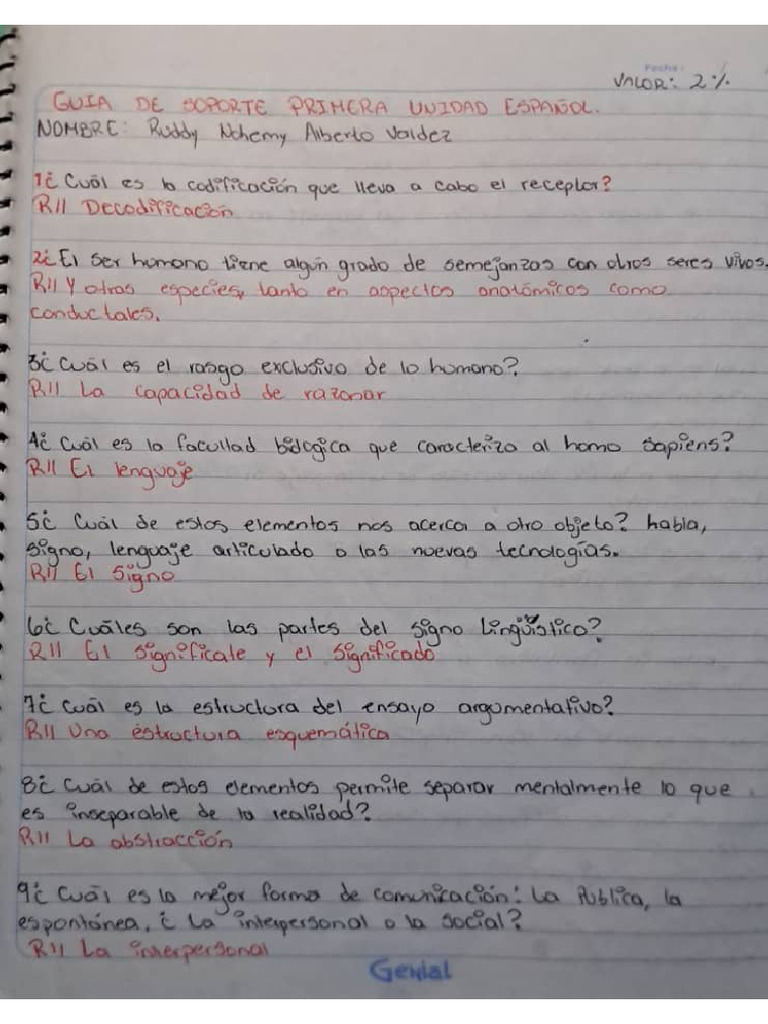 Fecha:
VALOR: 2%
GUIA DE SOPORTE PRIMERA UNIDAD ESPAÑOL.
NOMBRE: Ruddy Nohemy Alberto Valdez
1¿ Cuál es la codificación que lleva a cabo el receptor?
R// Decodificación
2¿ El ser humano tiene algún grado de semejanzas con otros seres vivos.
R// Y otras especies, tanto en aspectos anatómicos como
conductales.
3¿ Cuál es el rasgo exclusivo de lo humano?
R// La capacidad de razonar
4¿ Cuál es la facultad biologica que caracteriza al homo sapiens?
R// El lenguaje
5¿ Cuál de estos elementos nos acerca a otro objeto? habla,
signo, lenguaje articulado o las nuevas tecnologías.
R// El Signo
6¿ Cuáles son las partes del signo lingüístico?
R// El significate y el significado
7¿ Cuál es la estructura del ensayo argumentativo?
R// Una estructura esquemática
8¿ Cuál de estos elementos permite separar mentalmente lo que
es inseparable de la realidad?
R// La abstracción
9¿ Cuál es la mejor forma de comunicación: La Publica, la
espontánea, ¿ La interpersonal o la social?
R// La interpersonal
Genial